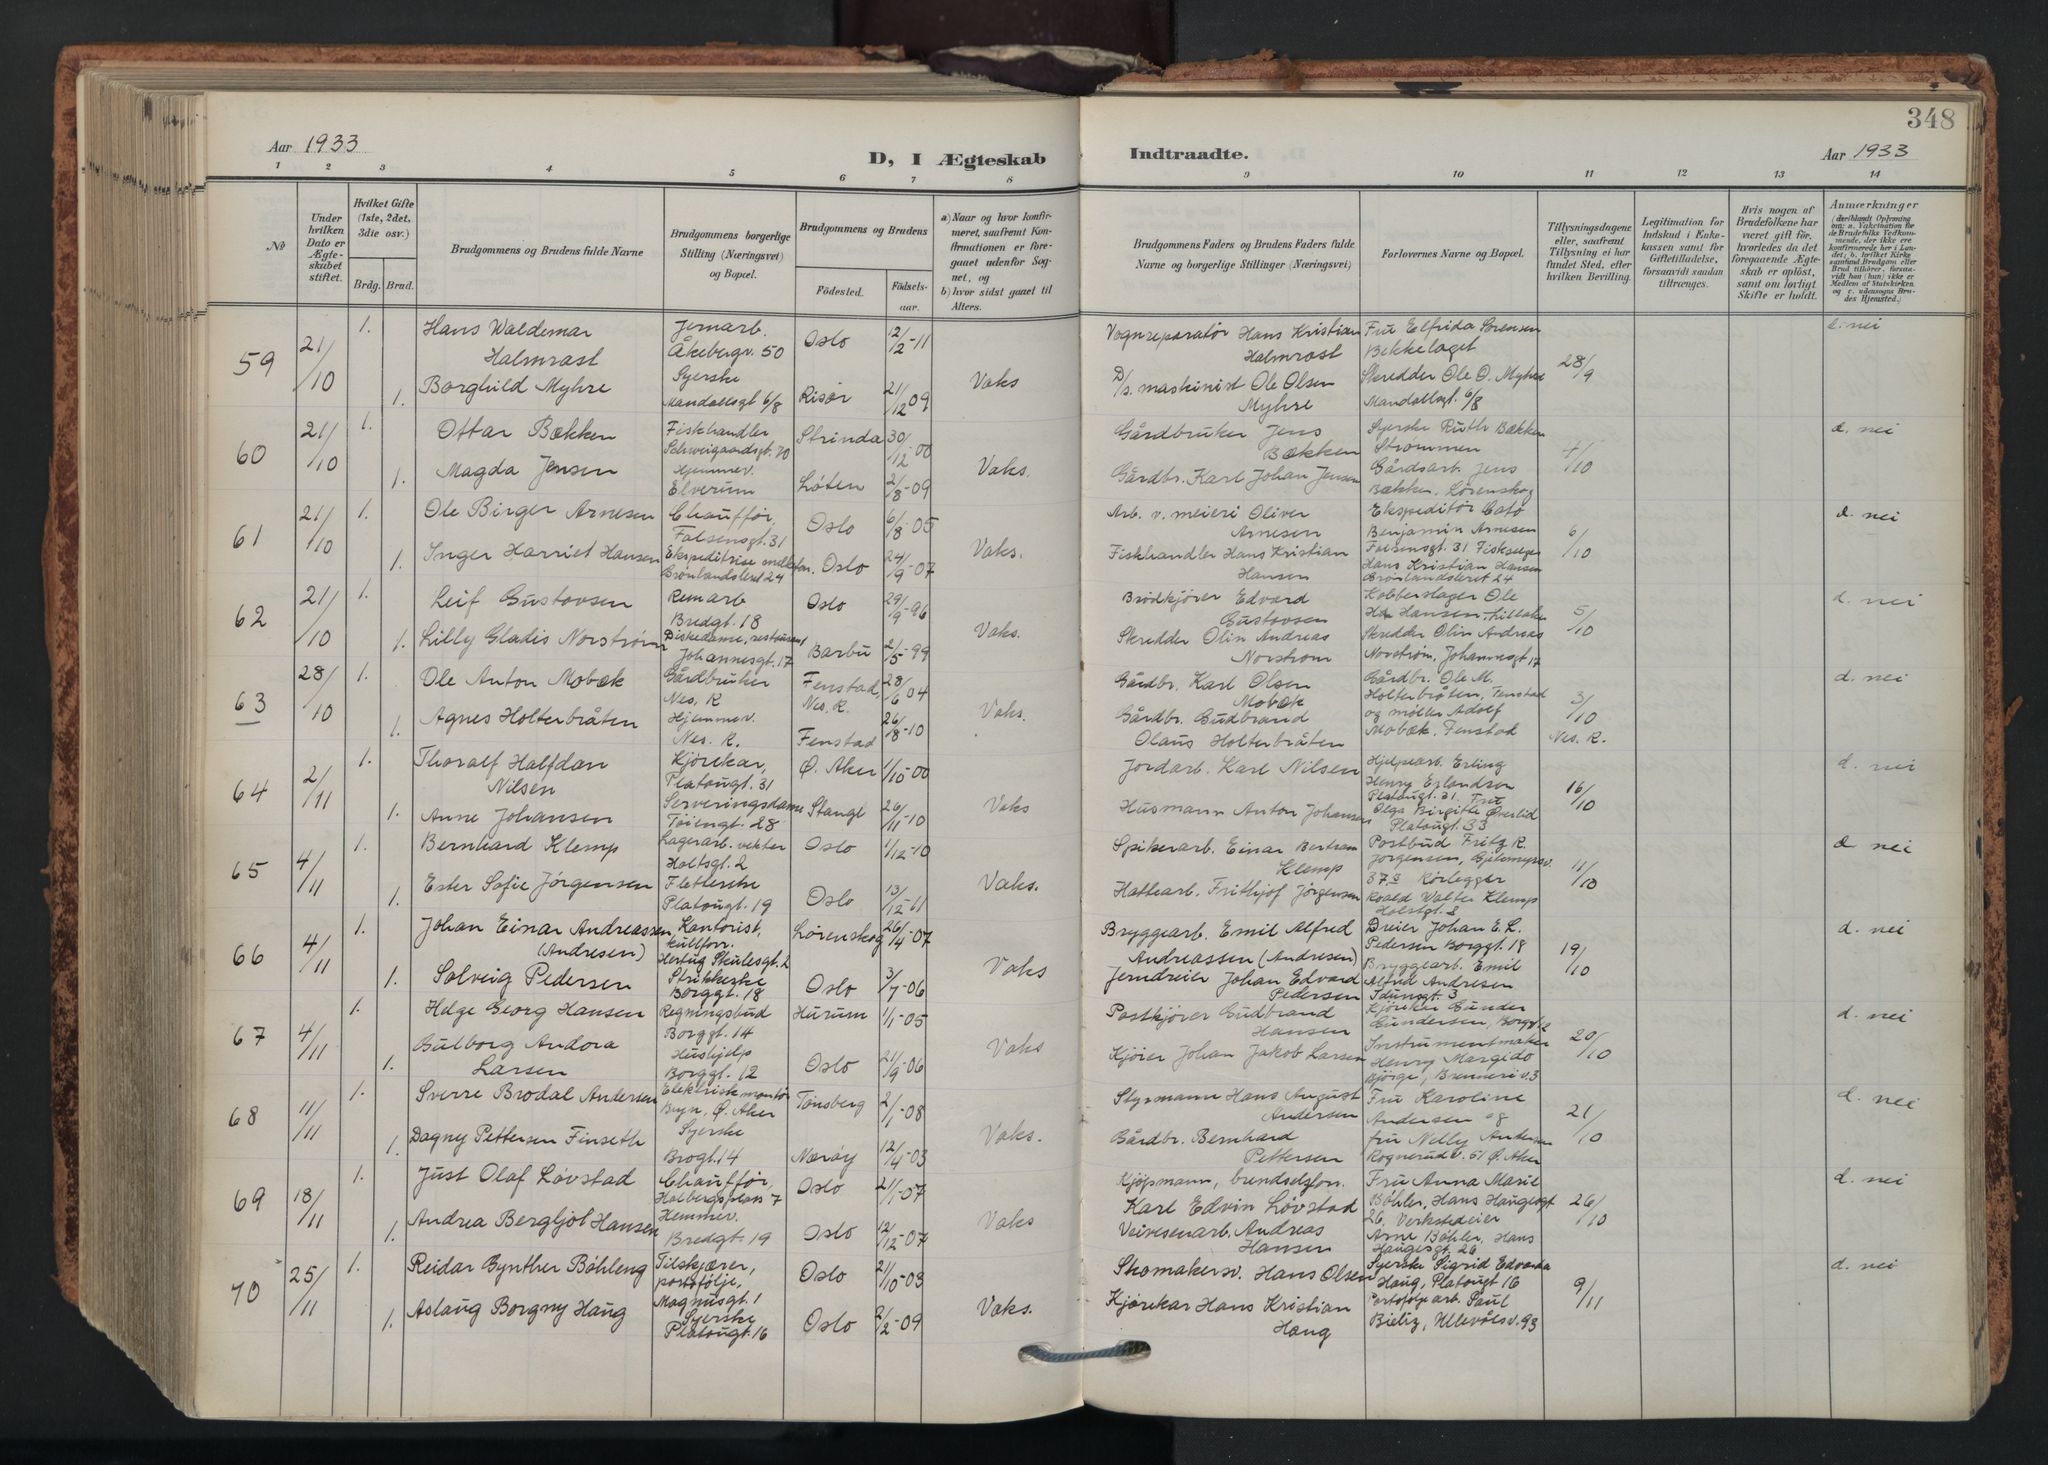 348
Aar 1933
D, I Ægteskab
Indtraadte.
Aar 1933
1 2 3 4 5 6 7 8 9 10 11 12 13 14
№
Under hvilken Dato er Ægteskabet stiftet.
Hvilket Gifte (1ste, 2det, 3die osv.)
Brdg. Brud.
Brudgommens og Brudens fulde Navne
Brudgommens borgerlige Stilling (Næringsvei) og Bopæl.
Brudgommens og Brudens
Fødested.
Fødselsaar.
a) Naar og hvor konfirmeret, saafremt Konfirmationen er foregaaet udenfor Sognet, og
b) hvor sidst gaaet til Alters.
Brudgommens Faders og Brudens Faders fulde Navne og borgerlige Stillinger (Næringsvei)
Forlovernes Navne og Bopæl.
Tillysningsdagene eller, saafremt Tillysning ei har fundet Sted, efter hvilken Bevilling.
Legitimation for Indskud i Enkekassen samt for Giftetilladelse, forsaavidt saadan tiltrænges.
Hvis nogen af Brudefolkene har været gift før, hvorledes da det foregaaende Ægteskab er opløst, samt om lovligt Skifte er holdt.
Anmærkninger
(deriblandt Oplysning om: a. Vakcination for de Brudefolks Vedkommende, der ikke ere konfirmerede her i Landet; b. hvilket Kirkesamfund Brudgom eller Brud tilhører, forsaavidt han (hun) ikke er Medlem af Statskirken og c. udensogns Brudes Hjemsted.)
59 21/10 1. Hans Waldemar Halmrast Jernarb. Åkebergv. 50 Oslo 12/2-11 Vognreparatør Hans Kristian Halmrast Fru Elfrida Sørensen Bekkelaget 28/9 d. nei
1. Borghild Myhre Syerske Mandallsgt 6/8 Risør 21/12 09 Vaks D/s. maskinist Ole Olsen Myhre Skredder Ole O. Myhre Mandallsgt. 6/8
60 21/10 1. Ottar Bækken Fiskhandler Schweigaardsgt. 70 Strinda 30/12-00 Gårdbruker Jens Bækken Syerske Ruth Bækken Strømmen 4/10 d. nei
1. Magda Jensen Hjemmev. Elverum Løten 2/8-09 Vaks. Gårdbr. Karl Johan Jensen Gårdsarb. Jens Bækken, Lørenskog
61 21/10 1. Ole Birger Arnesen Chauffør, Falsensgt. 31 Oslo 6/8-05 Arb. v. meieri Oliver Arnesen Ekspeditør Cato Benjamin Arnesen Falsensgt. 31 6/10 d. nei
1. Inger Harriet Hansen Ekspeditrise Brønlandsleret 24 Oslo 24/9-07 Vaks. Fiskhandler Hans Kristian Hansen Fiskselger Hans Kristian Hansen Brønlandsleret 24
62 21/10 1. Leif Gustovsen Remarb Bredgt. 18 Oslo 29/9-96 Brødkjører Edvard Gustovsen Kobberslager Ole Hansen, Lilleaker 5/10 d. nei
1. Lilly Gladis Norstrøm Diskedame, restaurant Johannesgt. 17 Barbu 2/5-99 Vaks. Skredder Olin Andreas Norstrom Skredder Olin Andreas Norstrøm, Johannesgt 17
63 28/10 1. Ole Anton Mobæk Gårdbruker Nes. R. Fenstad, Nes. R. 28/6 04 Gårdbr. Karl Olsen Mobæk Gårdbr. Ole M. Holterbråten, Fenstad 3/10 Nes. R. d. nei
1. Agnes Holterbråten Hjemmev. Nes. R. Fenstad 26/8-10 Vaks. Gårdbr. Gudbrand Olaus Holterbråten og møller Adolf Mobæk, Fenstad
64 2/11 1. Thoralf Halfdan Nilsen Kjørekar, Platougt. 31 Ø. Aker 1/10-00 Jordarb. Karl Nilsen Hjelpearb. Erling Henry Erlandsen Platougt. 31. Fru 16/10 d. nei
1. Anne Johansen Serveringsdame Tøiengt. 28 Stange 26/11-10 Vaks Husmann Anton Johansen Olga Birgitte Øverlid Platougt. 33
65 4/11 1. Bernhard Klemp Lagerarb. vekter Holtsgt. 2 Oslo 1/12-10 Spikerarb. Einar Bertram Klemp Postbud Fritz R. Jørgensen, 11/10 d. nei
1. Ester Sofie Jørgensen Fletterske Platougt. 19 Oslo 13/12-11 Vaks. Hattearb. Frithjof Jørgensen Rørlegger Roald Walter Klemp
66 4/11 1. Johan Einar Andreassen (Andresen) Kontorist, kullforr. Hertug Skulesgt. 2 Lørenskog 26/4-07 Bryggearb. Emil Alfred Andreassen (Andresen) Dreier Johan E. L. Pedersen Borggt. 18 19/10 d. nei
1. Solveig Pedersen Strikkerske Borggt. 18 Oslo 3/7-06 Vaks Jerndreier Johan Edvard Pedersen Bryggearb. Emil Alfred Andresen Idunsgt. 3
67 4/11 1. Helge Georg Hansen Regningsbud Borggt. 14 Hurum 1/1-05 Postkjører Gudbrand Hansen Kjørekar Gunder Gundersen, Borggt. 2 20/10 d. nei
1. Gulborg Andora Larsen Hushjelp Borggt. 12 Oslo 21/9-06 Vaks Kjører Johan Jakob Larsen Instrumentmaker Henry Margido Bjørge, Brenneriv. 3
68 11/11 1. Sverre Brodal Andersen Elektrisk montør Bryn, Ø. Aker Tønsberg 2/1-08 Styrmann Hans August Andersen Fru Karoline Andersen og 21/10 d. nei
1. Dagny Pettersen Finseth Syerske Brogt. 14 Nærøy 12/4-03 Vaks. Gårdbr. Bernhard Pettersen fru Nelly Andersen Rognerud v. 51 Ø. Aker
69 18/11 1. Just Olaf Løvstad Chauffør, Holbergs plass 7 Oslo 21/1-07 Kjøpmann, brendselsforr. Karl Edvin Løvstad Fru Anna Marie Bøhler, Hans Haugesgt 26, 26/10 d. nei
1. Andrea Bergljot Hansen Hemmev. Bredgt. 19 Oslo 12/12-07 Vaks Veivesenarb. Andreas Hansen Verkstedeier Arne Bøhler, Hans Haugesgt. 26
70 25/11 1. Reidar Gynther Bøhleng Tilskjærer, portefølje, Magnusgt. 1 Oslo 21/10-03 Skomakersv. Hans Olsen Syerske Sigrid Edvarda Haug, Platougt 16 9/11 d. nei
1. Aslaug Borgny Haug Syerske Platougt. 16 Oslo 2/2-09 Vaks. Kjørekar Hans Kristian Haug Porteføljearb. Paul Ullevålsv. 93